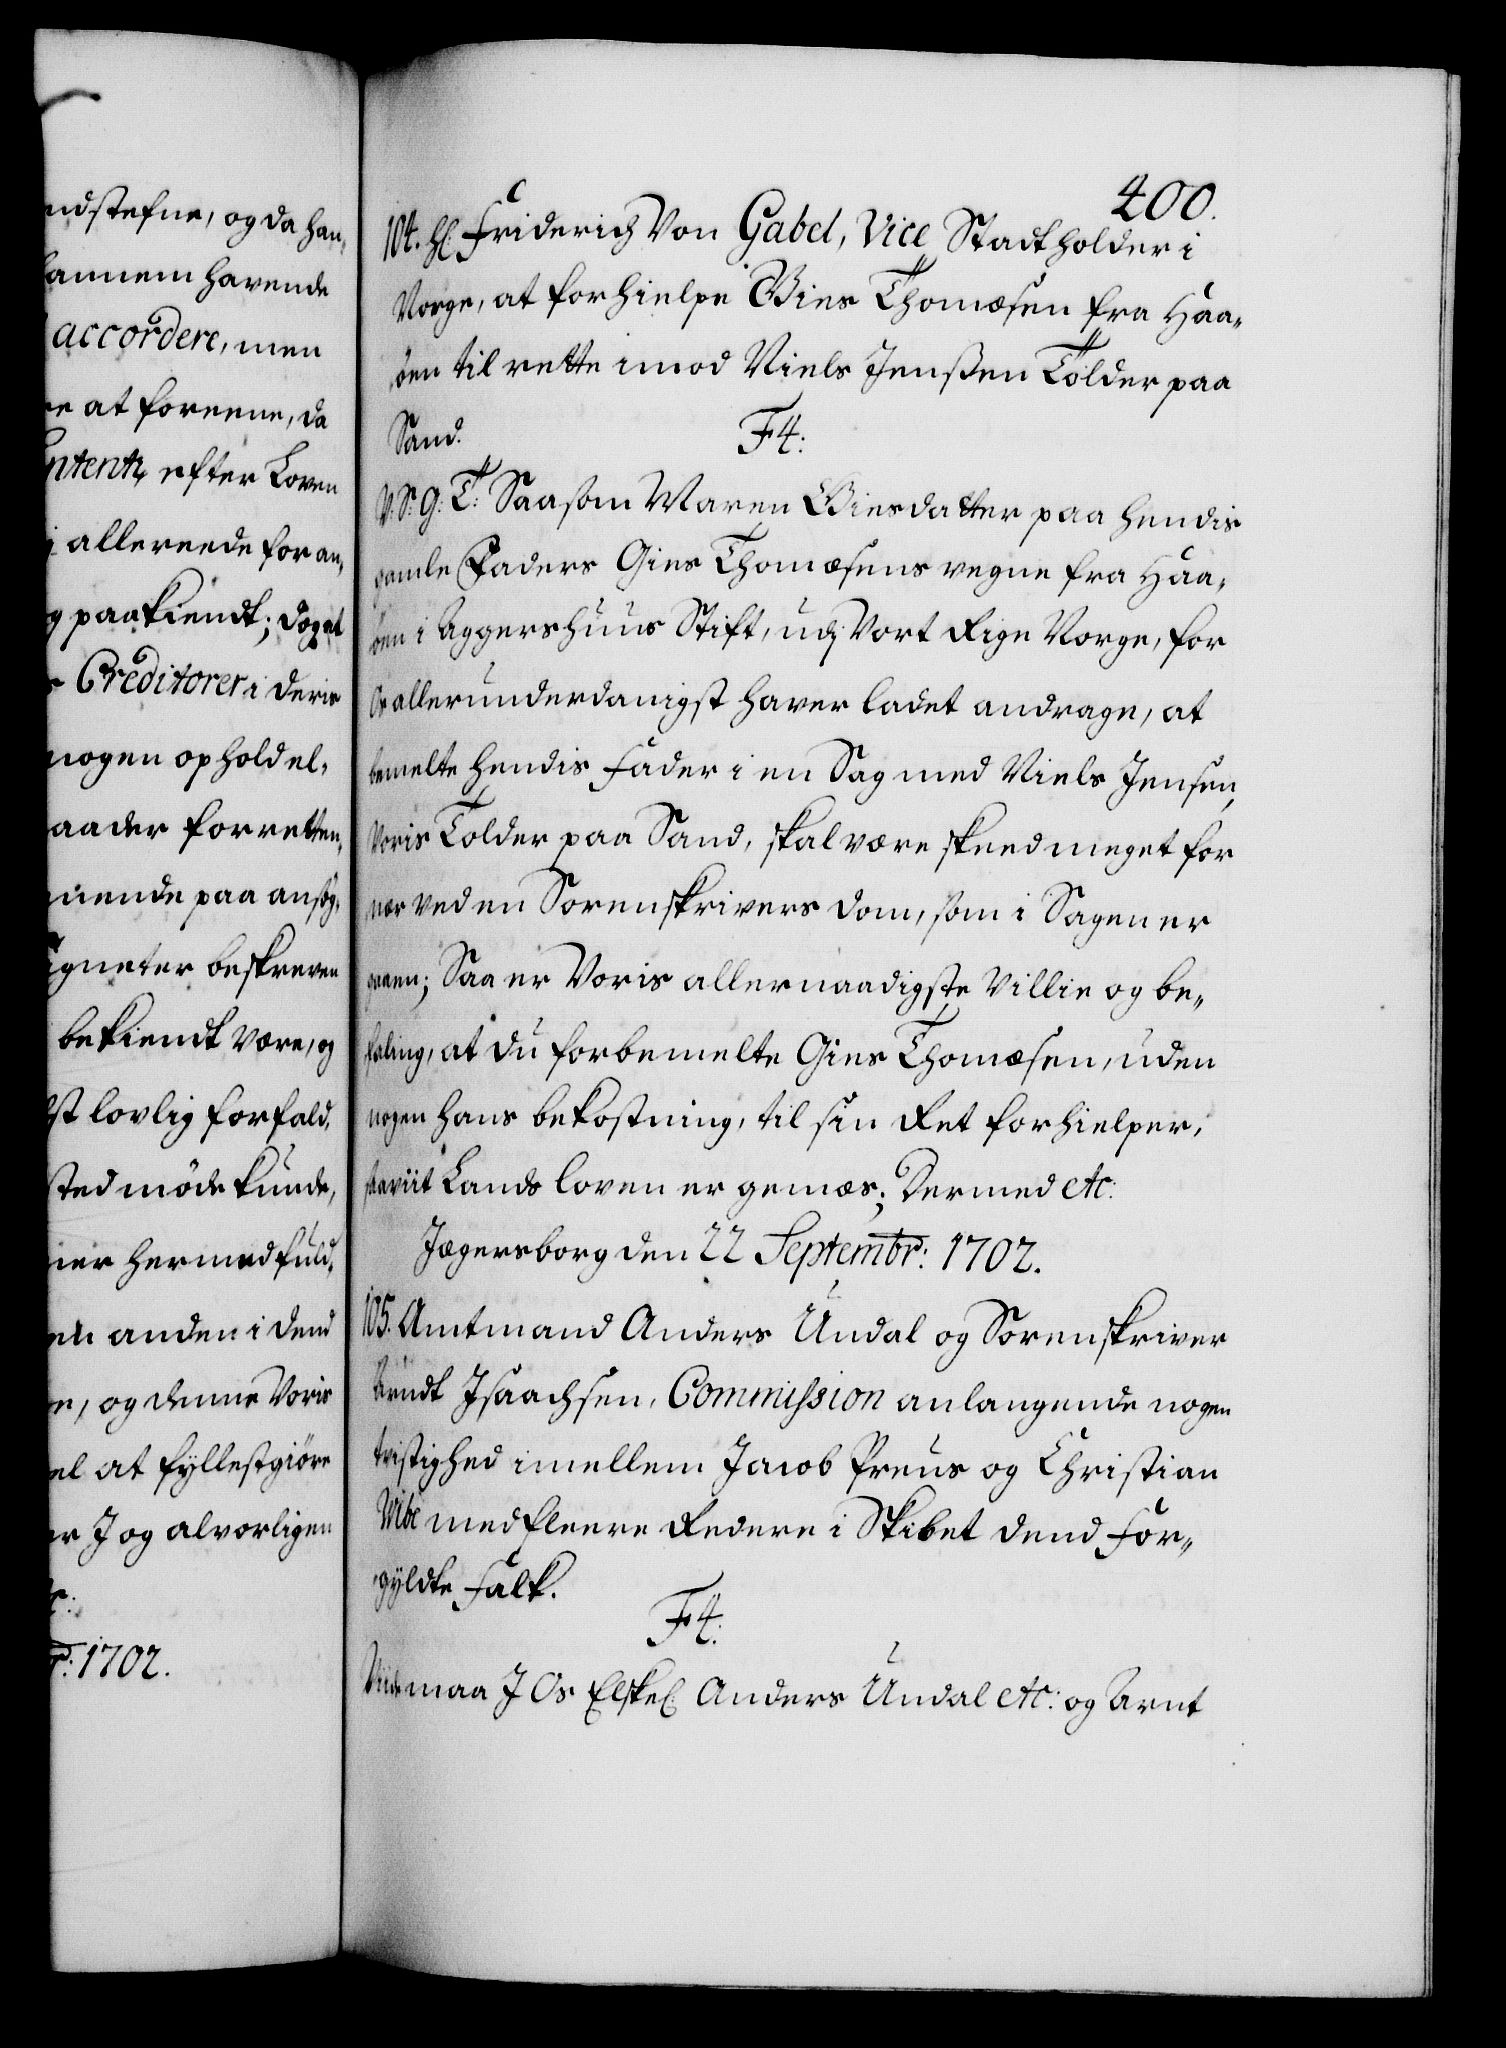 ndstefne, og da han„
hannem havende
accordere, men
re at foreene, da
ntent, efter Loven
allereede for an„
g paakiendt; dog at
Creditorer i deris
nogen ophold el„
aader forretten„
ende paa ansøg„
igneter beskreven
bekiendt være, og
st lovlig forfald,
sted møde kunde,
ier hermed fuld„
en anden i dend
e, og denne Voris
el at fyllestgiøre
er J og alvorligen
c:
r: 1702.
400.
104. Hl Friderich Von Gabel, Vice Stadtholder i
Norge, at forhielpe Gies Thomæsen fra Haa„
øen til rette imod Niels Jenssen Tolder paa
Sand.
F4:
V. S. G: T: Saasom Maren Giesdatter paa hendis
gamle Faders Gies Thomæsens vegne fra Haa„
øen i Aggershuus Stift, udj Vort Rige Norge, for
Os allerunderdanigst haver ladet andrage, at
bemelte hendis Fader i en Sag med Niels Jensen,
Voris Tolder paa Sand, skal være skeed meget for
nær ved en Sorenskrivers dom, som i Sagen er
gaaen; Saa er Voris allernaadigste Villie og be„
faling, at du forbemelte Gies Thomæsen, uden
nogen hans bekostning, til sin Ret forhielper,
saaviit Lands loven er gemæs; Dermed etc:
Jægersborg den 22 Septembr: 1702.
105. Amtmand Anders Undal og Sorenskriver
Arndt Isaachsen, Commission anlangende nogen
tvistighed imellem Jacob Preus og Christian
Wibe med fleere Redere i Skibet dend For„
gyldte Falk.
F4:
Viide maa J Os Elskel: Anders Undal etc: og Arnt